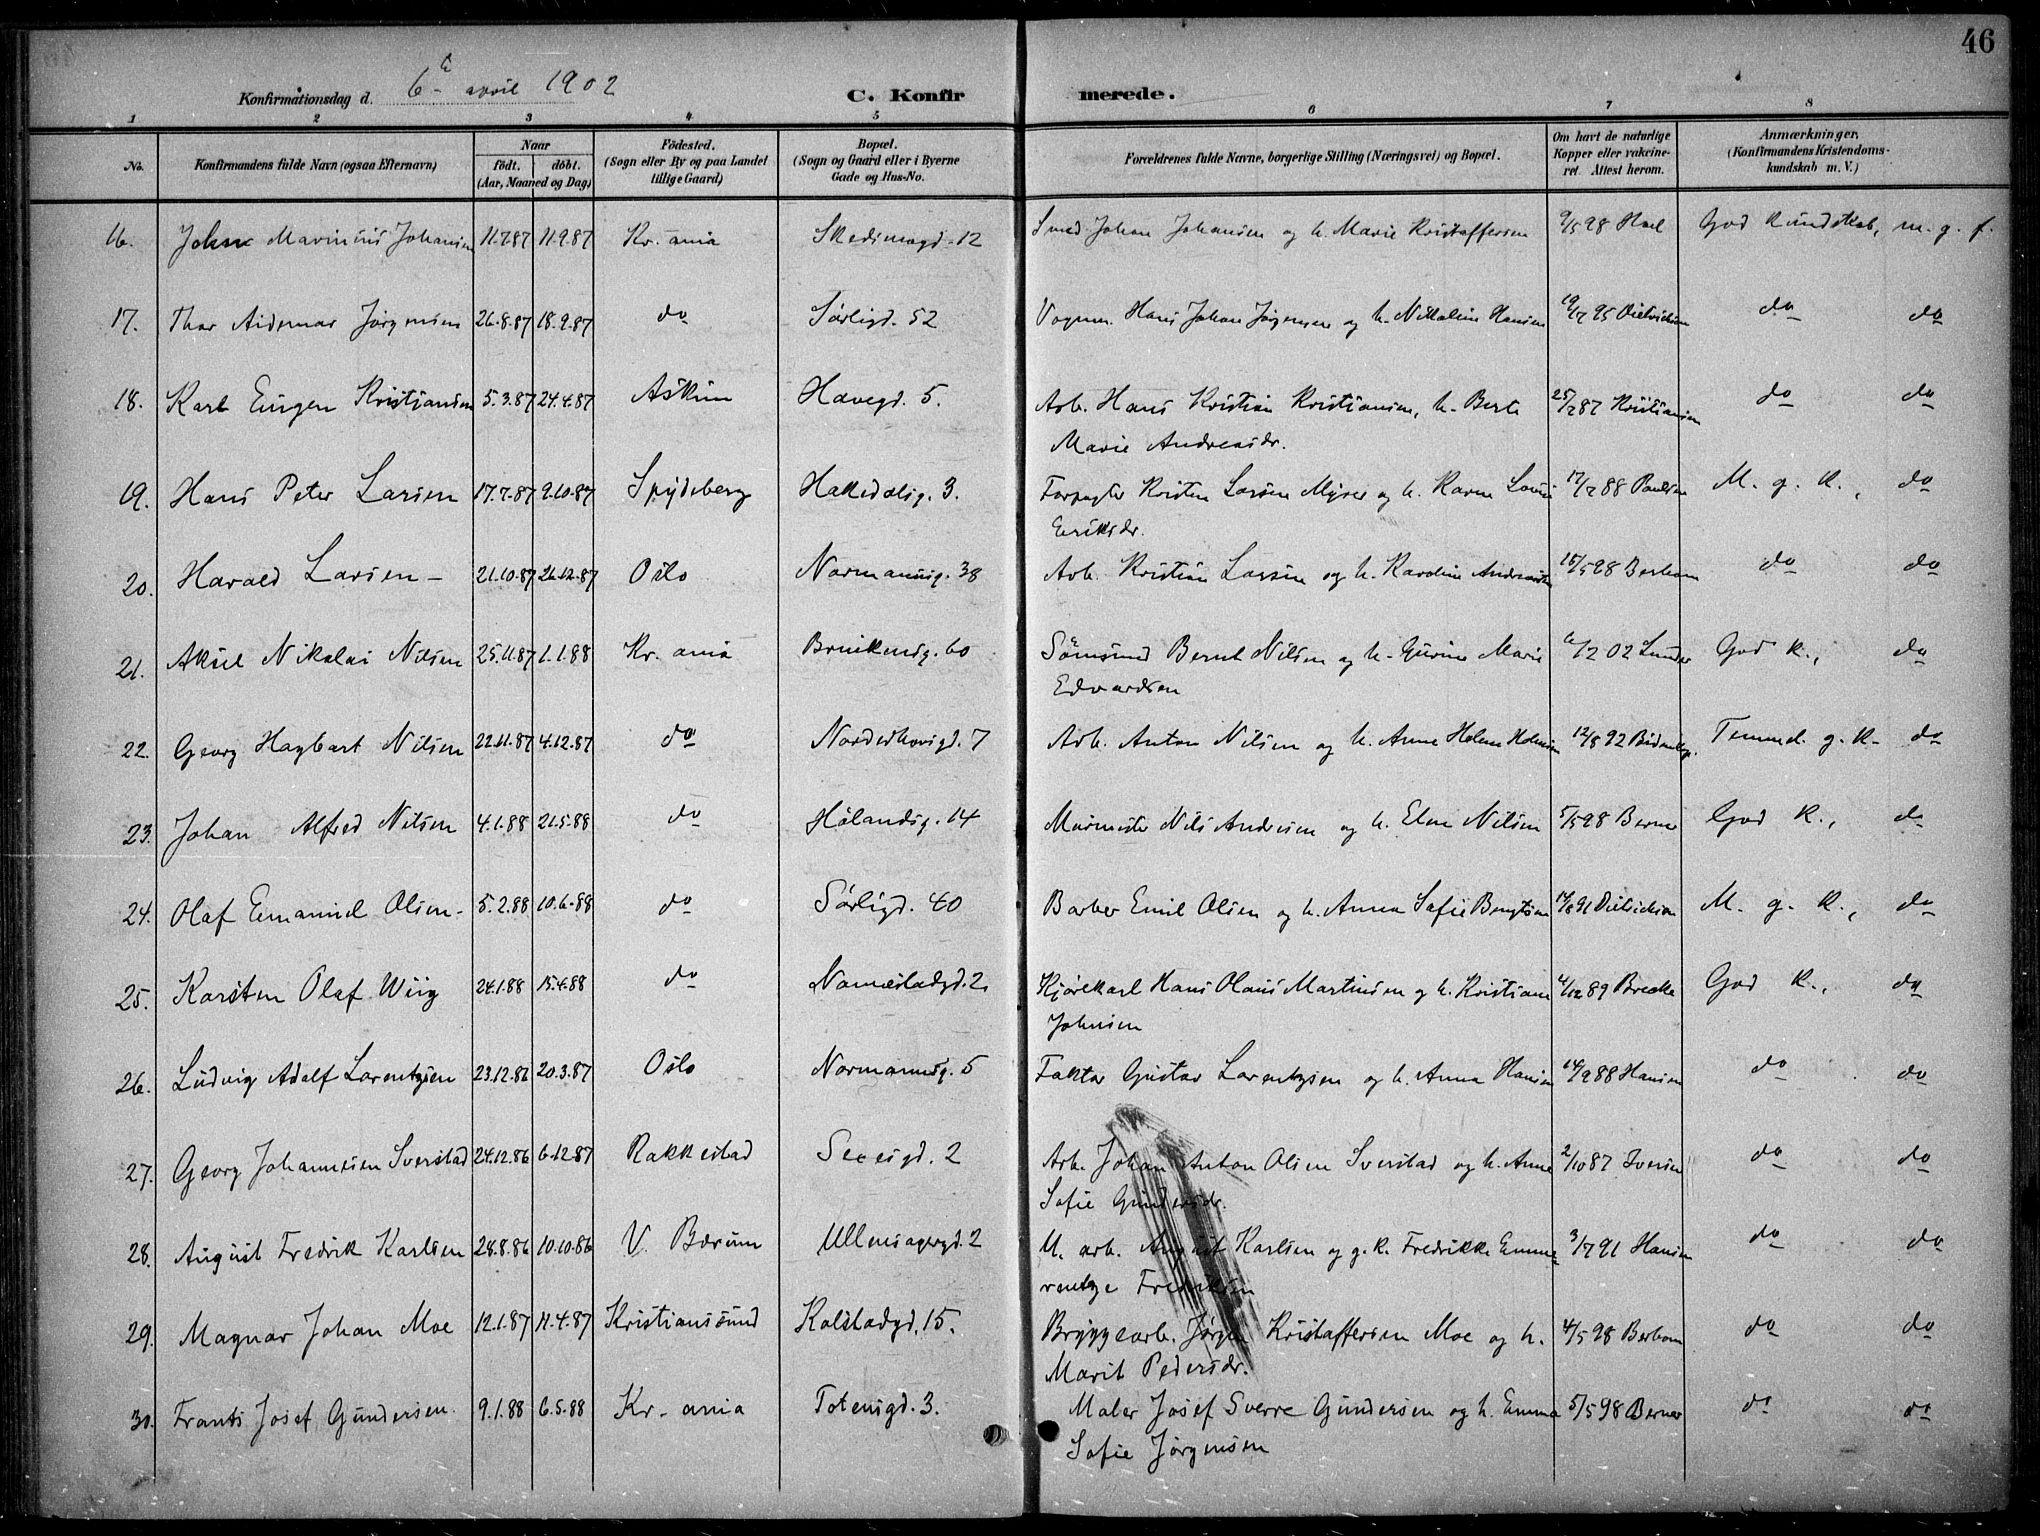 46
Konfirmationsdag d. 6te april 1902 C. Konfirmerede.
1 2 3 4 5 6 7 8
No. Konfirmandens fulde Navn (ogsaa Efternavn) Naar født. døbt. (Aar, Maaned og Dag) Födested. (Sogn eller By og paa Landet tillige Gaard) Bopæl. (Sogn og Gaard eller i Byerne Gade og Hus-No. Forældrenes fulde Navne, borgerlige Stilling (Næringsvei) og Bopæl. Om havt de naturlige Kopper eller vakcineret. Attest herom. Anmærkninger. (Konfirmandens Kristendomskundskab m. V.)
16. Johan Marinius Johansen 11.7.87 11.9.87 Kr.ania Skedsmogd. 12 Smed Johan Johansen og h. Marie Kristoffersen 9/5 98 God Kundskab, m. g. f.
17. Thor Aidemar Jørgensen 26.8.87 18.9.87 do Sørligd. 52 Vognm. Hans Johan Jørgensen og h. Nikoline Hansen 19/7 95 Dietrichson do do
18. Karl Eugen Kristiansen 5.3.87 24.4.87 Askim Havegd. 5. Arb. Hans Kristian Kristiansen, h. Berte 25/7 87 Kristiansen do do
Marie Andreasdr.
19. Hans Peter Larsen 17.7.87 9.10.87 Spydeberg Hakedalsg. 3. Forpagter Kristen Larsen Myrer og h. Karen Lovise 17/7 88 Paulsen M. g. K., do
Eriksdr.
20. Harald Larsen 21.10.87 26.12.87 Oslo Normannsg. 38 Arb. Kristian Larsen og h. Karoline Andreasdtr 15/5 98 do do
21. Aksel Nikolai Nilsen 25.11.87 1.1.88 Kr.ania Bruikensg. 60 Bernt Nilsen og h. Gurine Marie 6/2 02 Lunder God K., do
Edvardsen
22. Georg Hagbart Nilsen 22.11.87 4.12.87 do Norderhovsgd. 7 Arb. Anton Nilsen og h. Anne Helene Holmsen 12/8 92 Temmel. g. K. do
23. Johan Alfred Nilsen 4.1.88 21.5.88 do Hølandsg. 14 Murmester Nils Andresen og h. Elen Nilsen 5/5 98 Berner God K., do
24. Olaf Emanuel Olsen 5.2.88 10.6.88 do Sørligd. 40 Barber Emil Olsen og h. Anna Sofie Bengtsen Dietrichson M. g. K., do
25. Karsten Olaf Wiig 24.1.88 15.4.88 do Nannestadgd. 2. Kjørekarl Hans Olaus Martinsen og h. Kristiane 4/12 89 Brecke God K., do
Johnsen
26. Ludvig Adolf Lorentzen 23.12.86 20.3.87 Oslo Normannsg. 5 Faktor Gustav Lorentzsen og h. Anna Hansen 14/9 88 Hansen do do
27. Georg Johannesen Sverstad 24.12.86 6.12.87 Rakkestad Sexesgd. 2 Arb. Johan Anton Olsen Sverstad og h. Anne 2/10 87 Iversen do do
Sofie Gundersdr.
28. August Fredrik Karlsen 28.8.86 10.10.86 V. Bærum Ullensagergd. 2 M. arb. August Karlsen og g. k. Fredrikke Emme 3/7 91 Hansen do do
rentze Fredriksen
29. Magnar Johan Moe 12.1.87 11.4.87 Kristianssund Kolstadgd. 15. Bryggearb. Jørgen Kristoffersen Moe og h. 4/5 98 do do
Marit Pedersdr.
30. Frants Josef Gundersen. 9.1.88 6.5.88 Kr.ania Totensgd. 3. Maler Josef Sverre Gundersen og h. Emma 5/5 98 Berner do do
Sofie Jørgensen